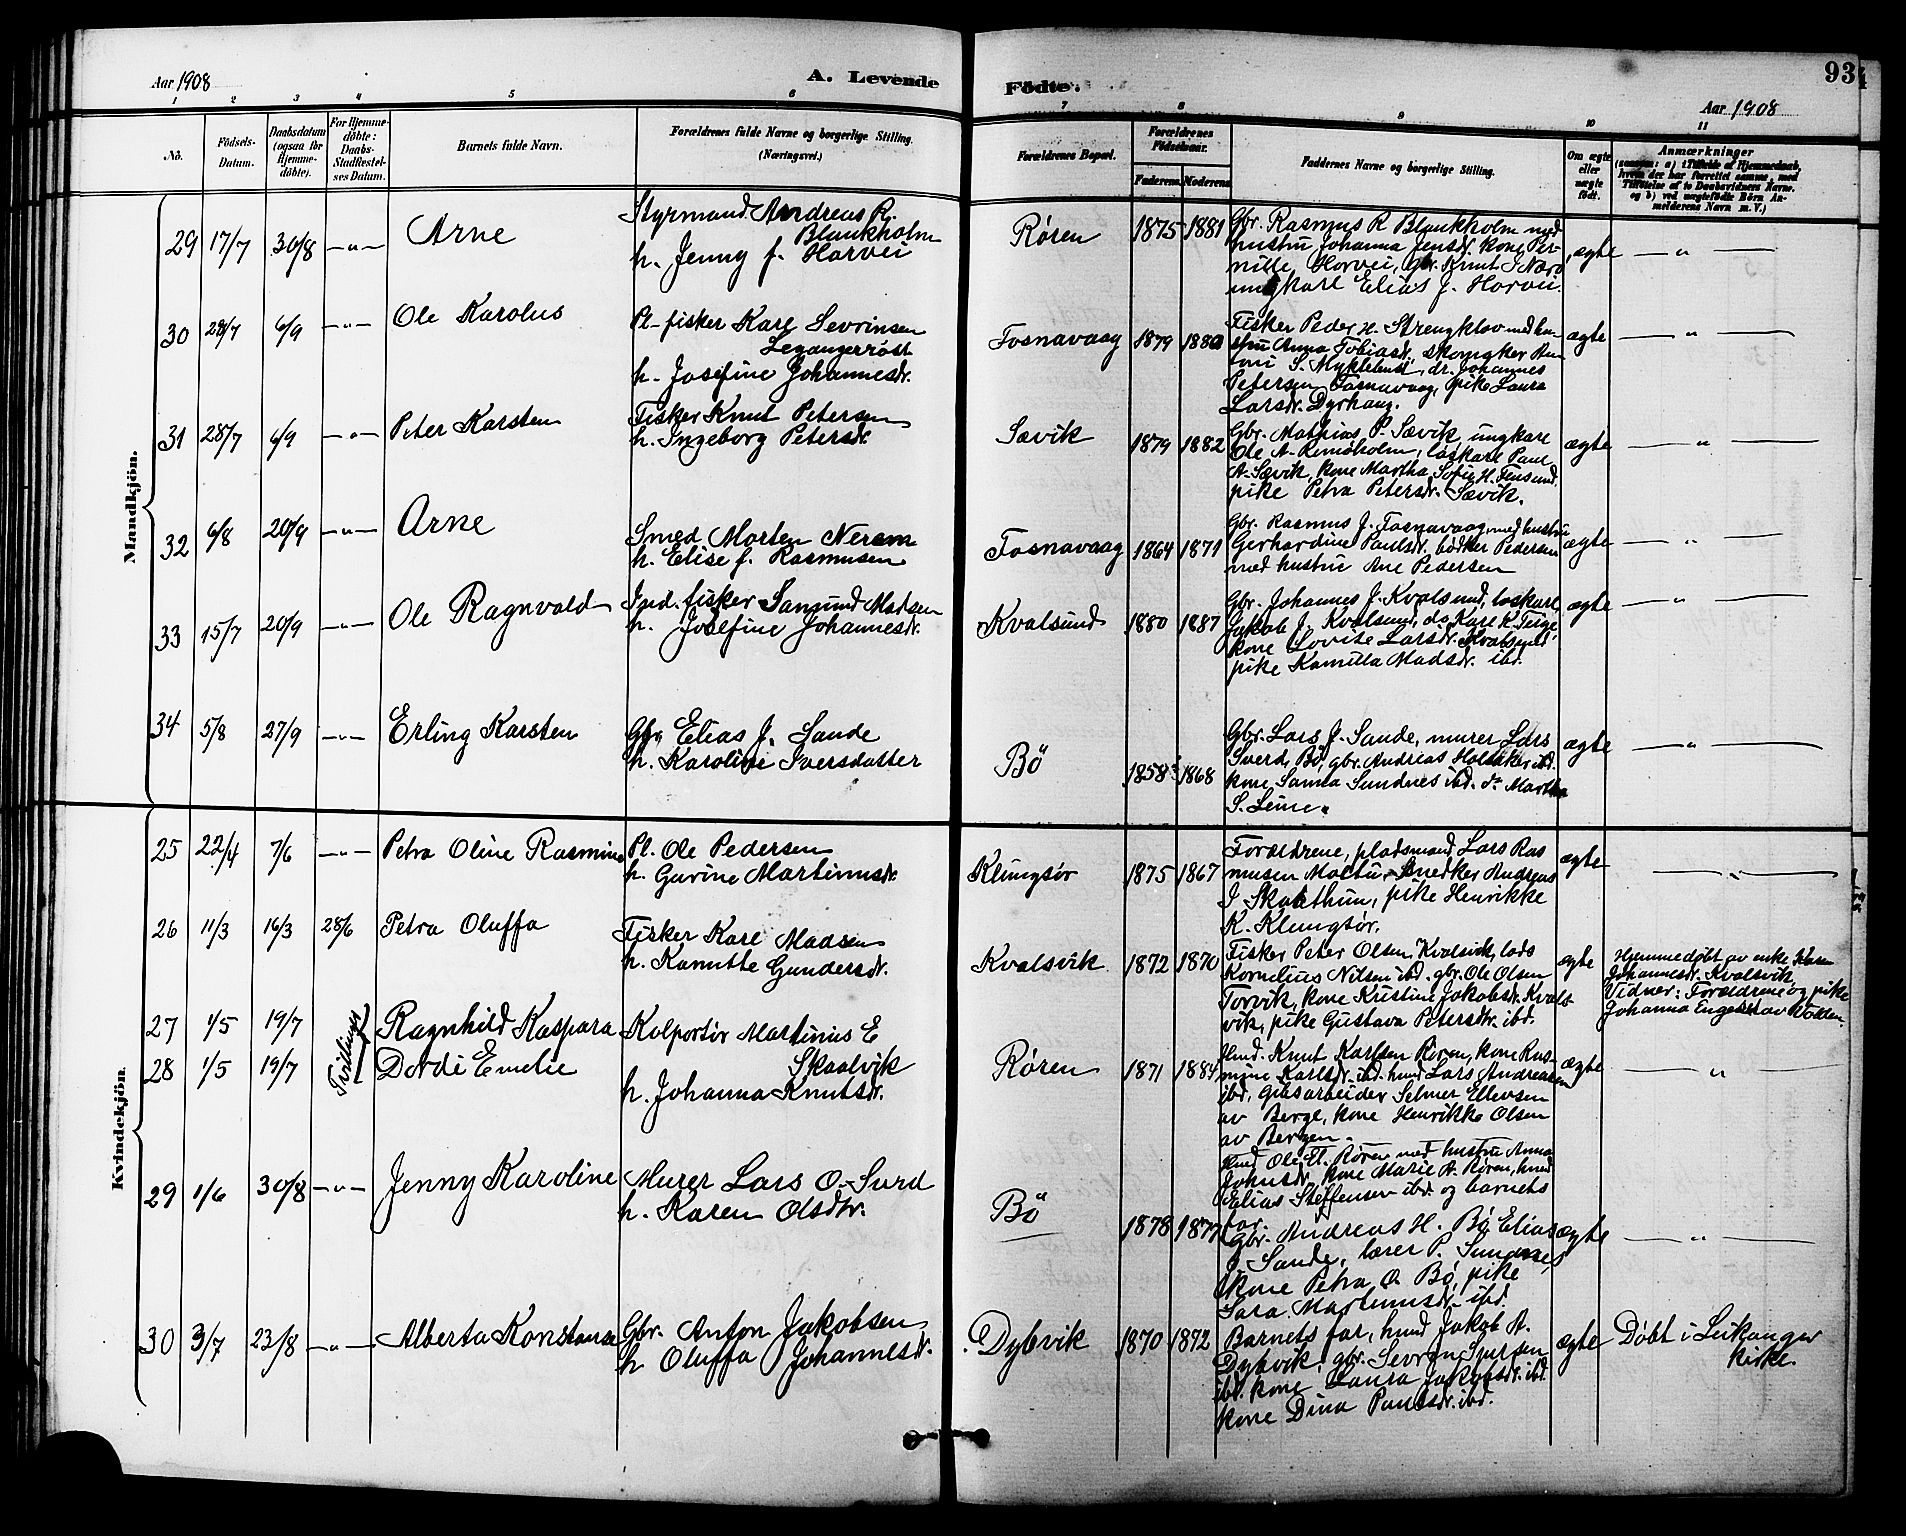 Aar 1908
A. Levende
Födte.
93
Aar 1908
1 2 3 4 5 6 7 8 9 10 11
No.
Födsels-
Datum.
Daabsdatum
(ogsaa for
Hjemme-
döbte).
For Hjemme-
döbte:
Daabs-
Stadfestel-
ses Datum.
Barnets fulde Navn.
Forældrenes fulde Navne og borgerlige Stilling.
(Næringsvei.)
Forældrenes Bopæl.
Forældrenes
Födselsaar.
Faderens. Moderens.
Faddernes Navne og borgerlige Stilling.
Om ægte
eller
uægte
født.
Anmærkninger
(saasom: a) i Tilfælde af Hjemmedaab,
hvem der har forrettet samme, med
Tilföielse af to Daabsvidners Navne,
og b) ved uægtefödte Börn An-
melderens Navn m. V.)
Mandkjön.
29 17/7 30/8 -"- Arne
Styrmand Andreas R.
Blankholm
h. Jenny f. Horvei
Røren 1875 1881
Gbr. Rasmus R Blankholm med
hustru Johanna Jensdr. kone Per-
nille Horvei, gbr. Knut S Nærø
ungkarl Elias J. Horvei.
ægte -"-
30 28/7 6/9 -"- Ole Karolus
Pl- fisker Karl Sevrinsen
Leganger
h. Josefine Johannesdr.
Fosnavaag 1879 1880
Fisker Peder H. Strengklov med hu-
stru Anna Tobiasdr., skomaker An
toni S. Myklebust, dr. Johannes
Petersen Fosnavaag, pike Laura
Larsdr. Dyrhaug.
ægte -"-
31 28/7 6/9 -"- Peter Karsten
Fisker Knut Petersen
h. Ingeborg Petersdr.
Sævik 1879 1882
Gbr. Mathias P. Sævik, ungkarl
Ole A. Remøholm, løskarl Paul
A. Sævik, kone Martha Sofie H.
pike Petra Petersdr. Sævik.
ægte -"-
32 6/8 20/9 -"- Arne
Smed Morten Nerem
h. Elise f. Rasmusen
Fosnavaag 1864 1871
Gbr. Rasmus J. Fosnavaag med hustru
Gerhardine Paulsdr. bødker Pedersen
med hustru Ane Pedersen
ægte -"-
33 15/7 20/9 -"- Ole Ragnvald
Ind. fisker Samund Madsen
h. Josefine Johannesdr.
Kvalsund 1880 1887
Gbr. Johannes J. Kvalsund, løskarl
Jakob J. Kvalsund, do Karl K. Teige,
kone Lovise Larsdr. Kvalsund
pike Kamilla Madsdr. ibd.
ægte -"-
34 5/8 27/9 -"- Erling Karsten
Gbr. Elias J. Sande
h. Karoline Iversdatter
Bö 1858 1868
Gbr. Lars J. Sande, murer Lars
Sverd, Bø, gbr. Andreas ibd.
kone Samea Sundnes ibd. do Martha
S. Leine.
ægte -"-
Kvindekjön.
25 22/4 7/6 -"- Petra Oline Rasmine
Pl. Ole Pedersen
h. Gurine Martinusdr.
Klungsør 1875 1867
Forældrene, pladsmand Lars Ras
musen Moltu, snedker Andreas
I Skolthun, pike Henrikke
K. Klungsør.
ægte -"-
26 11/3 16/3 28/6 Petra Oluffa
Fisker Karl Madsen
h. Kanutte Gundersdr.
Kvalsvik 1872 1870
Fisker Peter Olsen, Kvalsvik, lods
Kornelius Nilsen ibd. gbr. Ole Olsen
Torvik, kone Kristine Jakobsdr. Kvals
vik, pike Gustava Petersdtr. ibd.
ægte
Hjemmedøbt av enke Karen
Johannesdr. Kvalsvik,
Vidner: Forældrene og pike
Johanna av
Tvillinger
27 1/5 19/7 Ragnhild Kaspara
28 1/5 19/7 Dordi Emelie
Kolportör Martinius E
Skaalvik
h. Johanna Knutsdr.
Røren 1871 1884
Hmd. Knut Karlsen Røren, kone Ras-
mine Karlsdr. ibd. hmd Lars Andreasen
ibd, Grusarbeider Selmer Ellevsen
av Berge, kone Henrikke Olsen
av Bergen.
Hmd Ole El. Røren med hustru Anna
Johnsdr., kone Marie A. Røren, hmd
Elias Steffensen ibd. og barnets
far.
ægte -"-
29 1/6 30/8 -"- Jenny Karoline
Murer Lars O. Sverd
h. Karen Olsdtr.
Bö 1878 1877
Gbr. Andreas H. Bø, Elias
J. Sande, lærer P. Sundnes
kone Petra O. Bø, pike
Sara Martinusdr. ibd.
ægte -"-
30 3/7 23/8 -"- Alberta Konstanse
Gbr. Anton Jakobsen
h Oluffa Johannesdr.
Dybvik 1870 1872
Barnets far, hmd Jakob A.
Dybvik, gbr. Sevrin Sjursen
ibd. kone Laura Jakobsdr. ibd.
kone Dina Paulsdr. ibd.
ægte Døbt i Leikanger
kirke.